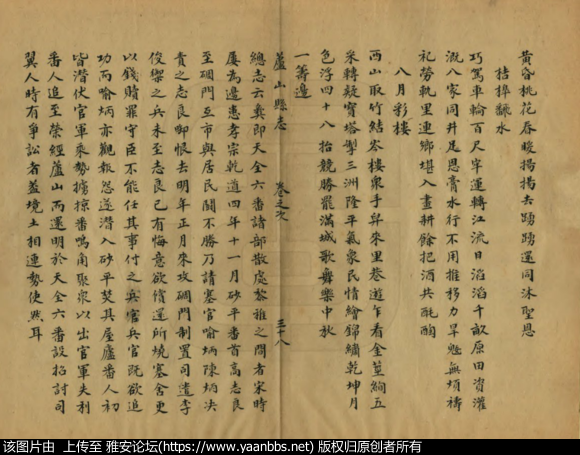 黄昏桃花春暖揚揚去踴踴還同沐聖恩
桔槔鷊水
巧駕車輪百尺牢運轉江流日滔滔千畝原田資灌
溉八家同井足恩膏水行不用推移力旱魃無煩禱
祀勞軌里連鄉堪入畫耕餘把酒共酕醄
八月彩樓
西山取竹結岑樓衆手舁來里巷遊乍看金莖絢五
采轉疑寶塔掣三洲隆平氣象民情繪錦繡乾坤月
色浮四十八抬競勝罷滿城歌舞樂中秋
一籌邊
蘆山縣志 卷之次 三十八
總志云彝即天全六番諸部散處黎雅之間者宋時
屢為邊患孝宗乾道四年十一月砂平番首高志良
至碉門互市與居民鬪不勝乃請塞官喻炳陳炳決
責之志良啣恨去明年正月來攻碉門制置司遣李
俊禦之兵未至志良已有悔意欲償還所燒塞舍更
以錢贖罪守臣不能任其事付之兵官兵官既欲追
功而喻炳亦覬報怨遂潛入砂平焚其屋廬番人初
皆潛伏官軍乘勢擄掠番鳴角聚衆以出官軍失利
番人追至榮經蘆山而還明於天全六番設招討司
翼人時有爭訟者蓋境土相連勢使然耳
该图片由 上传至 雅安论坛(https://www.yaanbbs.net) 版权归原创者所有